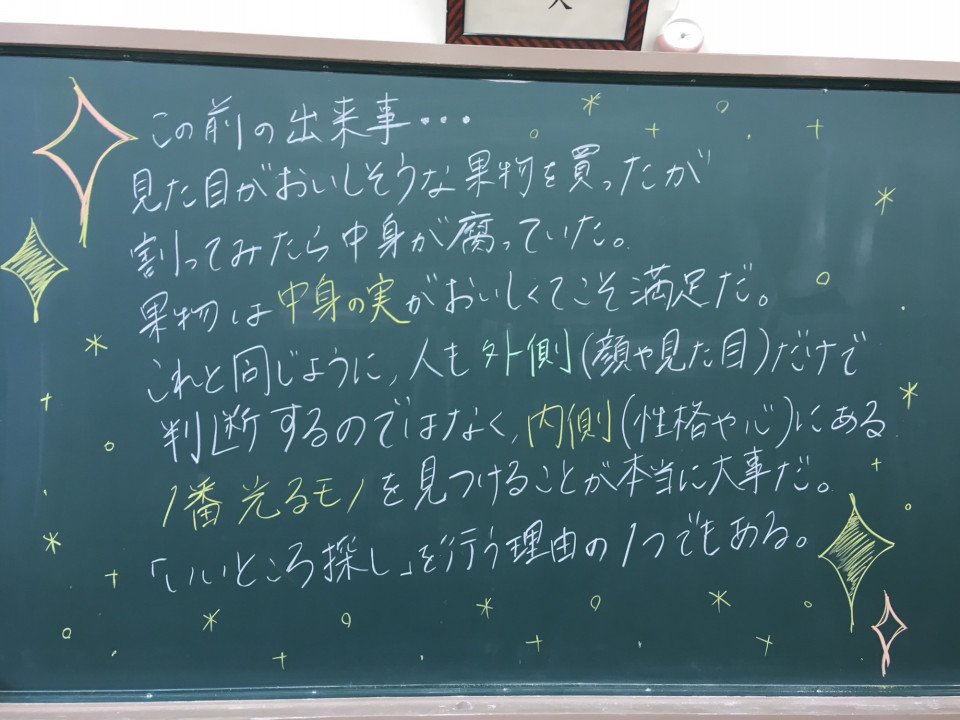 この前の出来事・・・
見た目がおいしそうな果物を買ったが
割ってみたら中身が腐っていた。
果物は中身の実がおいしくてこそ満足だ。
これと同じように、人も外側(顔や見た目)だけで
判断するのではなく、内側(性格や心)にある
1番光るモノを見つけることが本当に大事だ。
「いいところ探し」を行う理由の1つでもある。